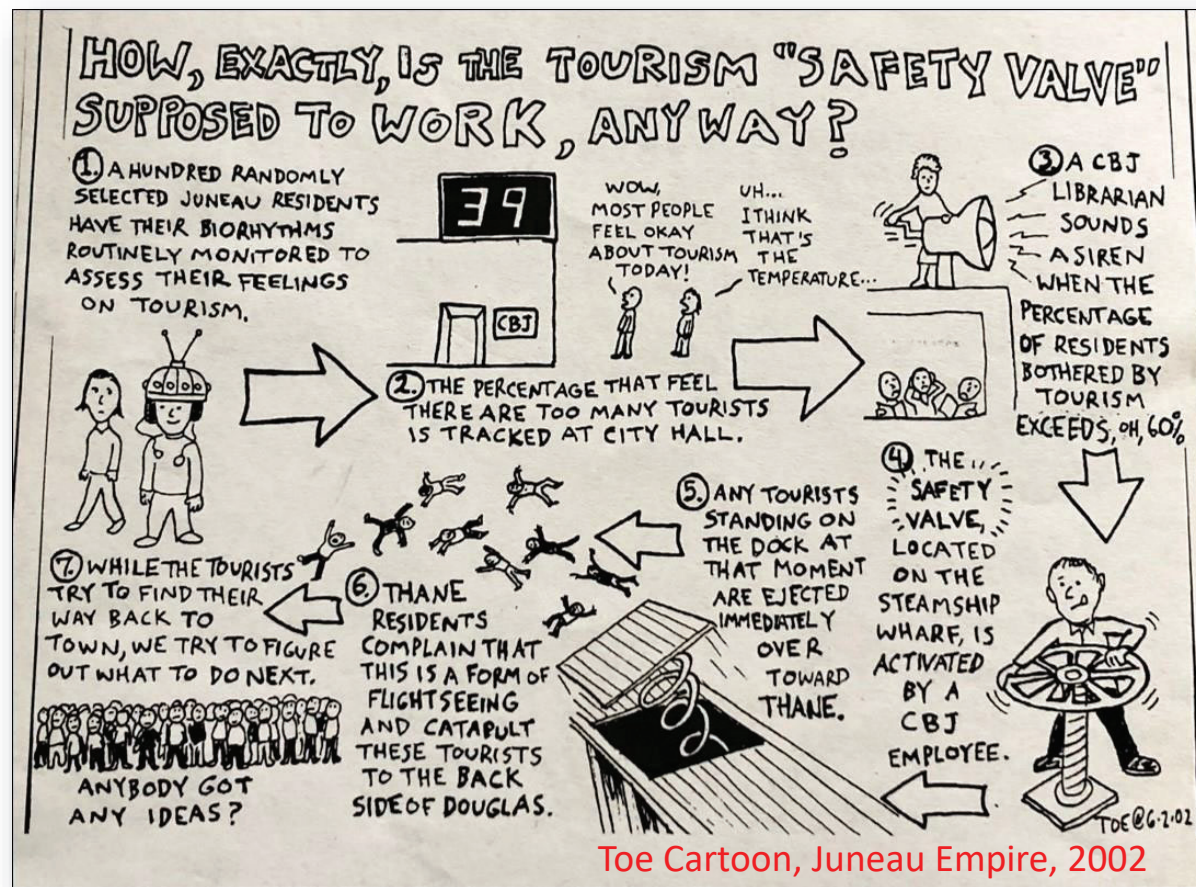 HOW, EXACTLY, IS THE TOURISM "SAFETY VALVE"
SUPPOSED TO WORK, ANYWAY?
1. A HUNDRED RANDOMLY
SELECTED JUNEAU RESIDENTS
HAVE THEIR BIORHYTHMS
ROUTINELY MONITORED TO
ASSESS THEIR FEELINGS
ON TOURISM.
39
CBJ
WOW,
MOST PEOPLE
FEEL OKAY
ABOUT TOURISM
TODAY!
UH...
I THINK
THAT'S
THE
TEMPERATURE...
2. THE PERCENTAGE THAT FEEL
THERE ARE TOO MANY TOURISTS
IS TRACKED AT CITY HALL.
3. A CBJ
LIBRARIAN
SOUNDS
A SIREN
WHEN THE
PERCENTAGE
OF RESIDENTS
BOTHERED BY
TOURISM
EXCEEDS, OH, 60%
4. THE
SAFETY
VALVE,
LOCATED
ON THE
STEAMSHIP
WHARF, IS
ACTIVATED
BY A
CBJ
EMPLOYEE.
5. ANY TOURISTS
STANDING ON
THE DOCK AT
THAT MOMENT
ARE EJECTED
IMMEDIATELY
OVER
TOWARD
THANE.
6. THANE
RESIDENTS
COMPLAIN THAT
THIS IS A FORM OF
FLIGHTSEEING
AND CATAPULT
THESE TOURISTS
TO THE BACK
SIDE OF DOUGLAS.
7. WHILE THE TOURISTS
TRY TO FIND THEIR
WAY BACK TO
TOWN, WE TRY TO FIGURE
OUT WHAT TO DO NEXT.
ANYBODY GOT
ANY IDEAS?
TOE@6·2·02
Toe Cartoon, Juneau Empire, 2002